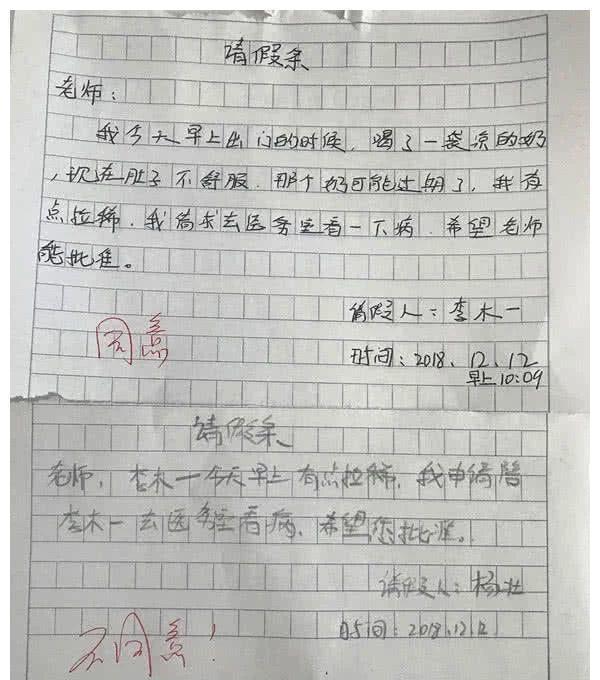 请假条
老师：
我今天早上出门的时候，喝了一袋凉的奶
，现在肚子不舒服．那个奶可能过期了，我有
点拉稀．我需求去医务室看一下病．希望老师
能批准。
请假人：李木一
同意
时间：2018．12．12
早上10:09
请假条
老师，李木一今天早上有点拉稀，我申请陪
李木一去医务室看病，希望您批准。
请假人：杨壮
时间：2018.12.12
不同意！